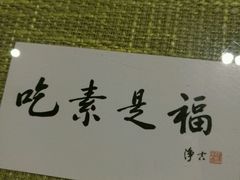 吃素是福
净空